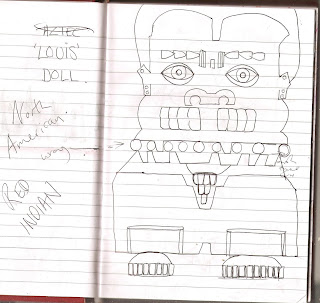 AZTEC
'LOUIS'
DOLL.
North
American.
way
RED
INDIAN